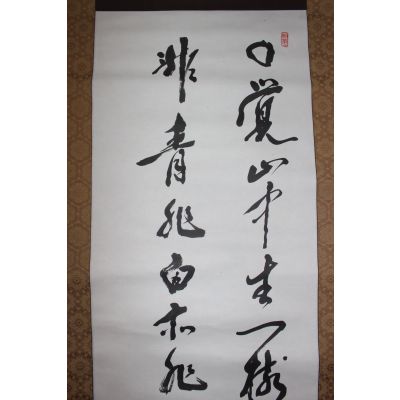 円覚山中生一樹
非青非白亦非